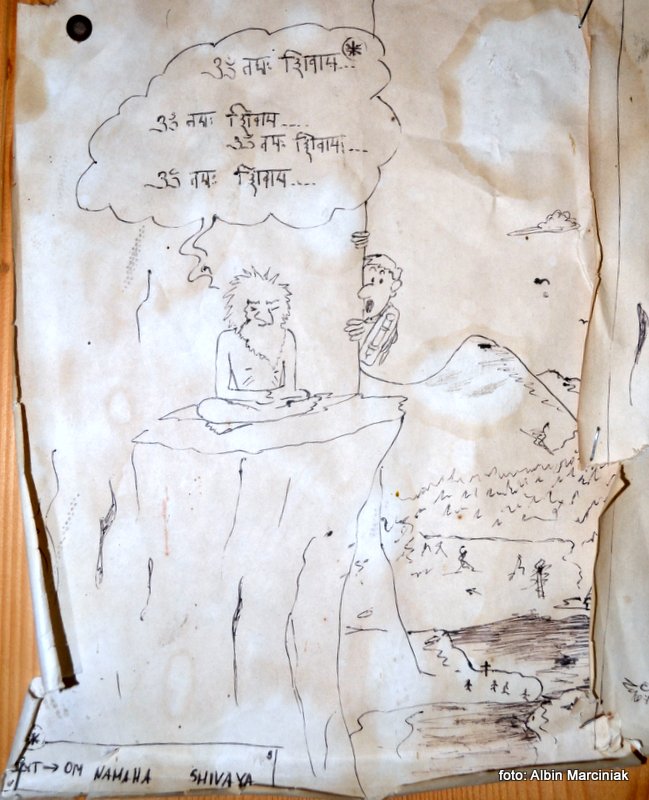 ॐ नमः शिवाय...*
ॐ नमः शिवाय....
ॐ नमः शिवाय...
ॐ नमः शिवाय....
*
→ OM NAMAHA SHIVAYA
foto: Albin Marciniak